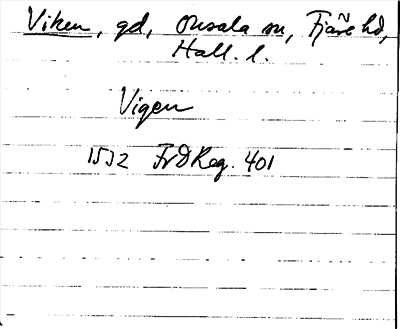 Viken, gd, Onsala sn, Fjäre hd,
Hall. l.
Vigen
1532 FrdReg. 401